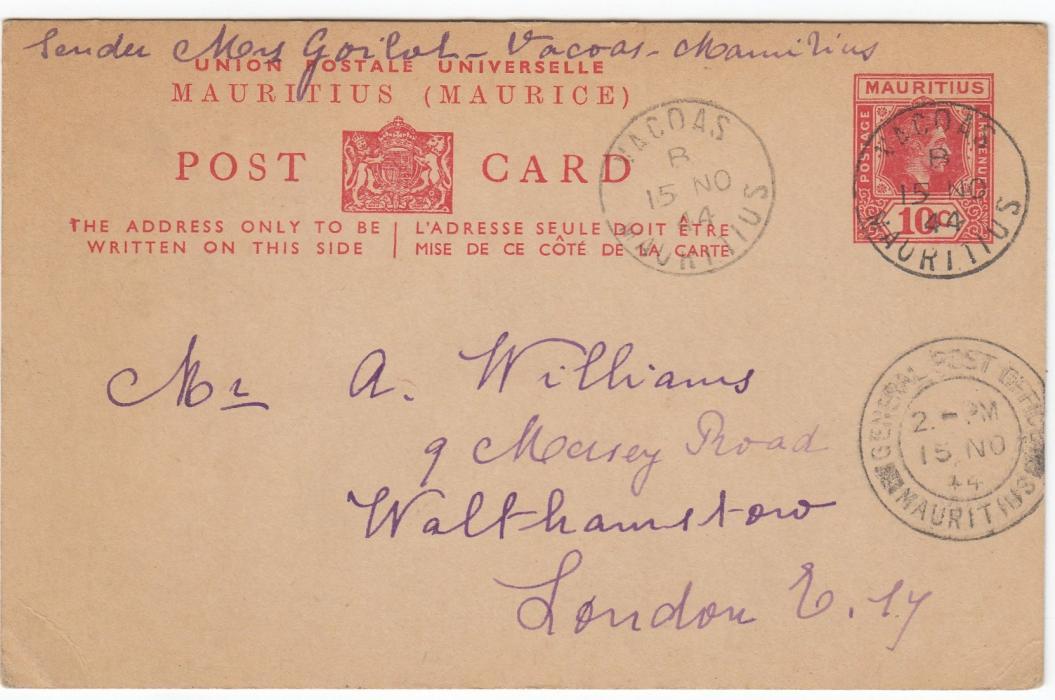 Sender Mrs Goilot - Vacoas - Mauritius
UNION POSTALE UNIVERSELLE
MAURITIUS (MAURICE)
POST CARD
THE ADDRESS ONLY TO BE WRITTEN ON THIS SIDE
L'ADRESSE SEULE DOIT ÊTRE MISE DE CE CÔTÉ DE LA CARTE
VACOAS
B
15 NO
44
MAURITIUS
MAURITIUS
POSTAGE
REVENUE
10c
VACOAS
B
15 NO
44
MAURITIUS
GENERAL POST OFFICE
2. - PM
15 NO
44
MAURITIUS
Mr A. Williams
9 Mersey Road
Walthamstow
London E. 17